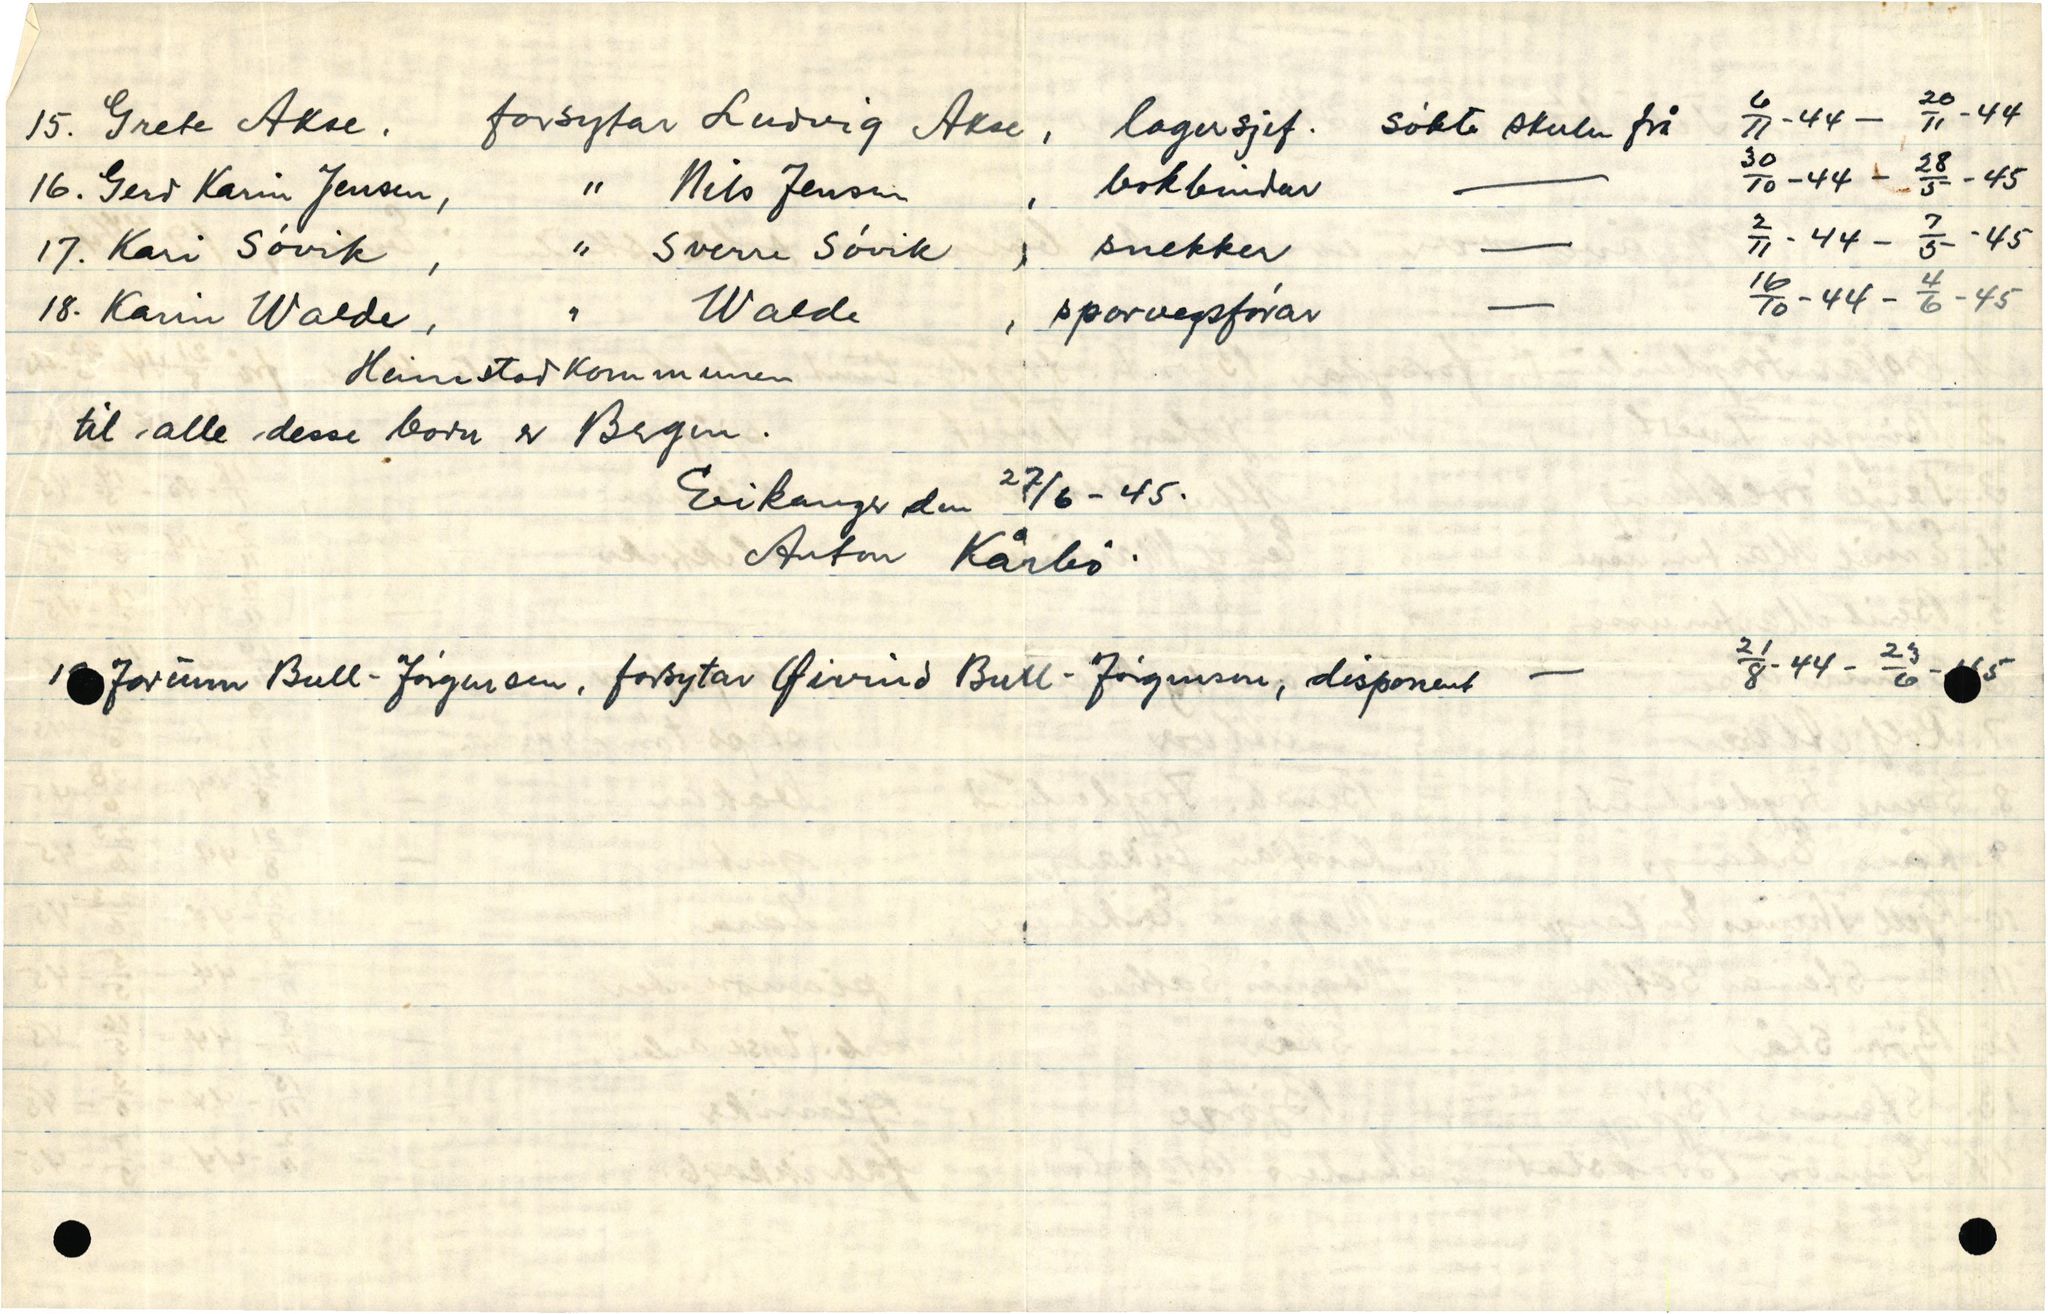 15. Grete Akse. forsytar Ludvig Akse, lagersjef. sókte skulen frå 6/11-44 — 20/11-44
16. Gerd Karin Jensen, " Nils Jensen, bokbindar — 30/10-44 - 28/5-45
17. Kari Sóvik, " Sverre Sóvik, snekker — 2/11-44 - 7/5-45
18. Karin Walde, " Walde, sporvegsfórar — 16/10-44 - 4/6-45
Heimstadkommunen
til alle desse born er Bergen.
Eikanger den 27/6-45.
Anton Kårbó.
Jorunn Bull-Jórgensen, forsytar Øivind Bull-Jórgensen, disponent — 21/8-44 - 23/6-45